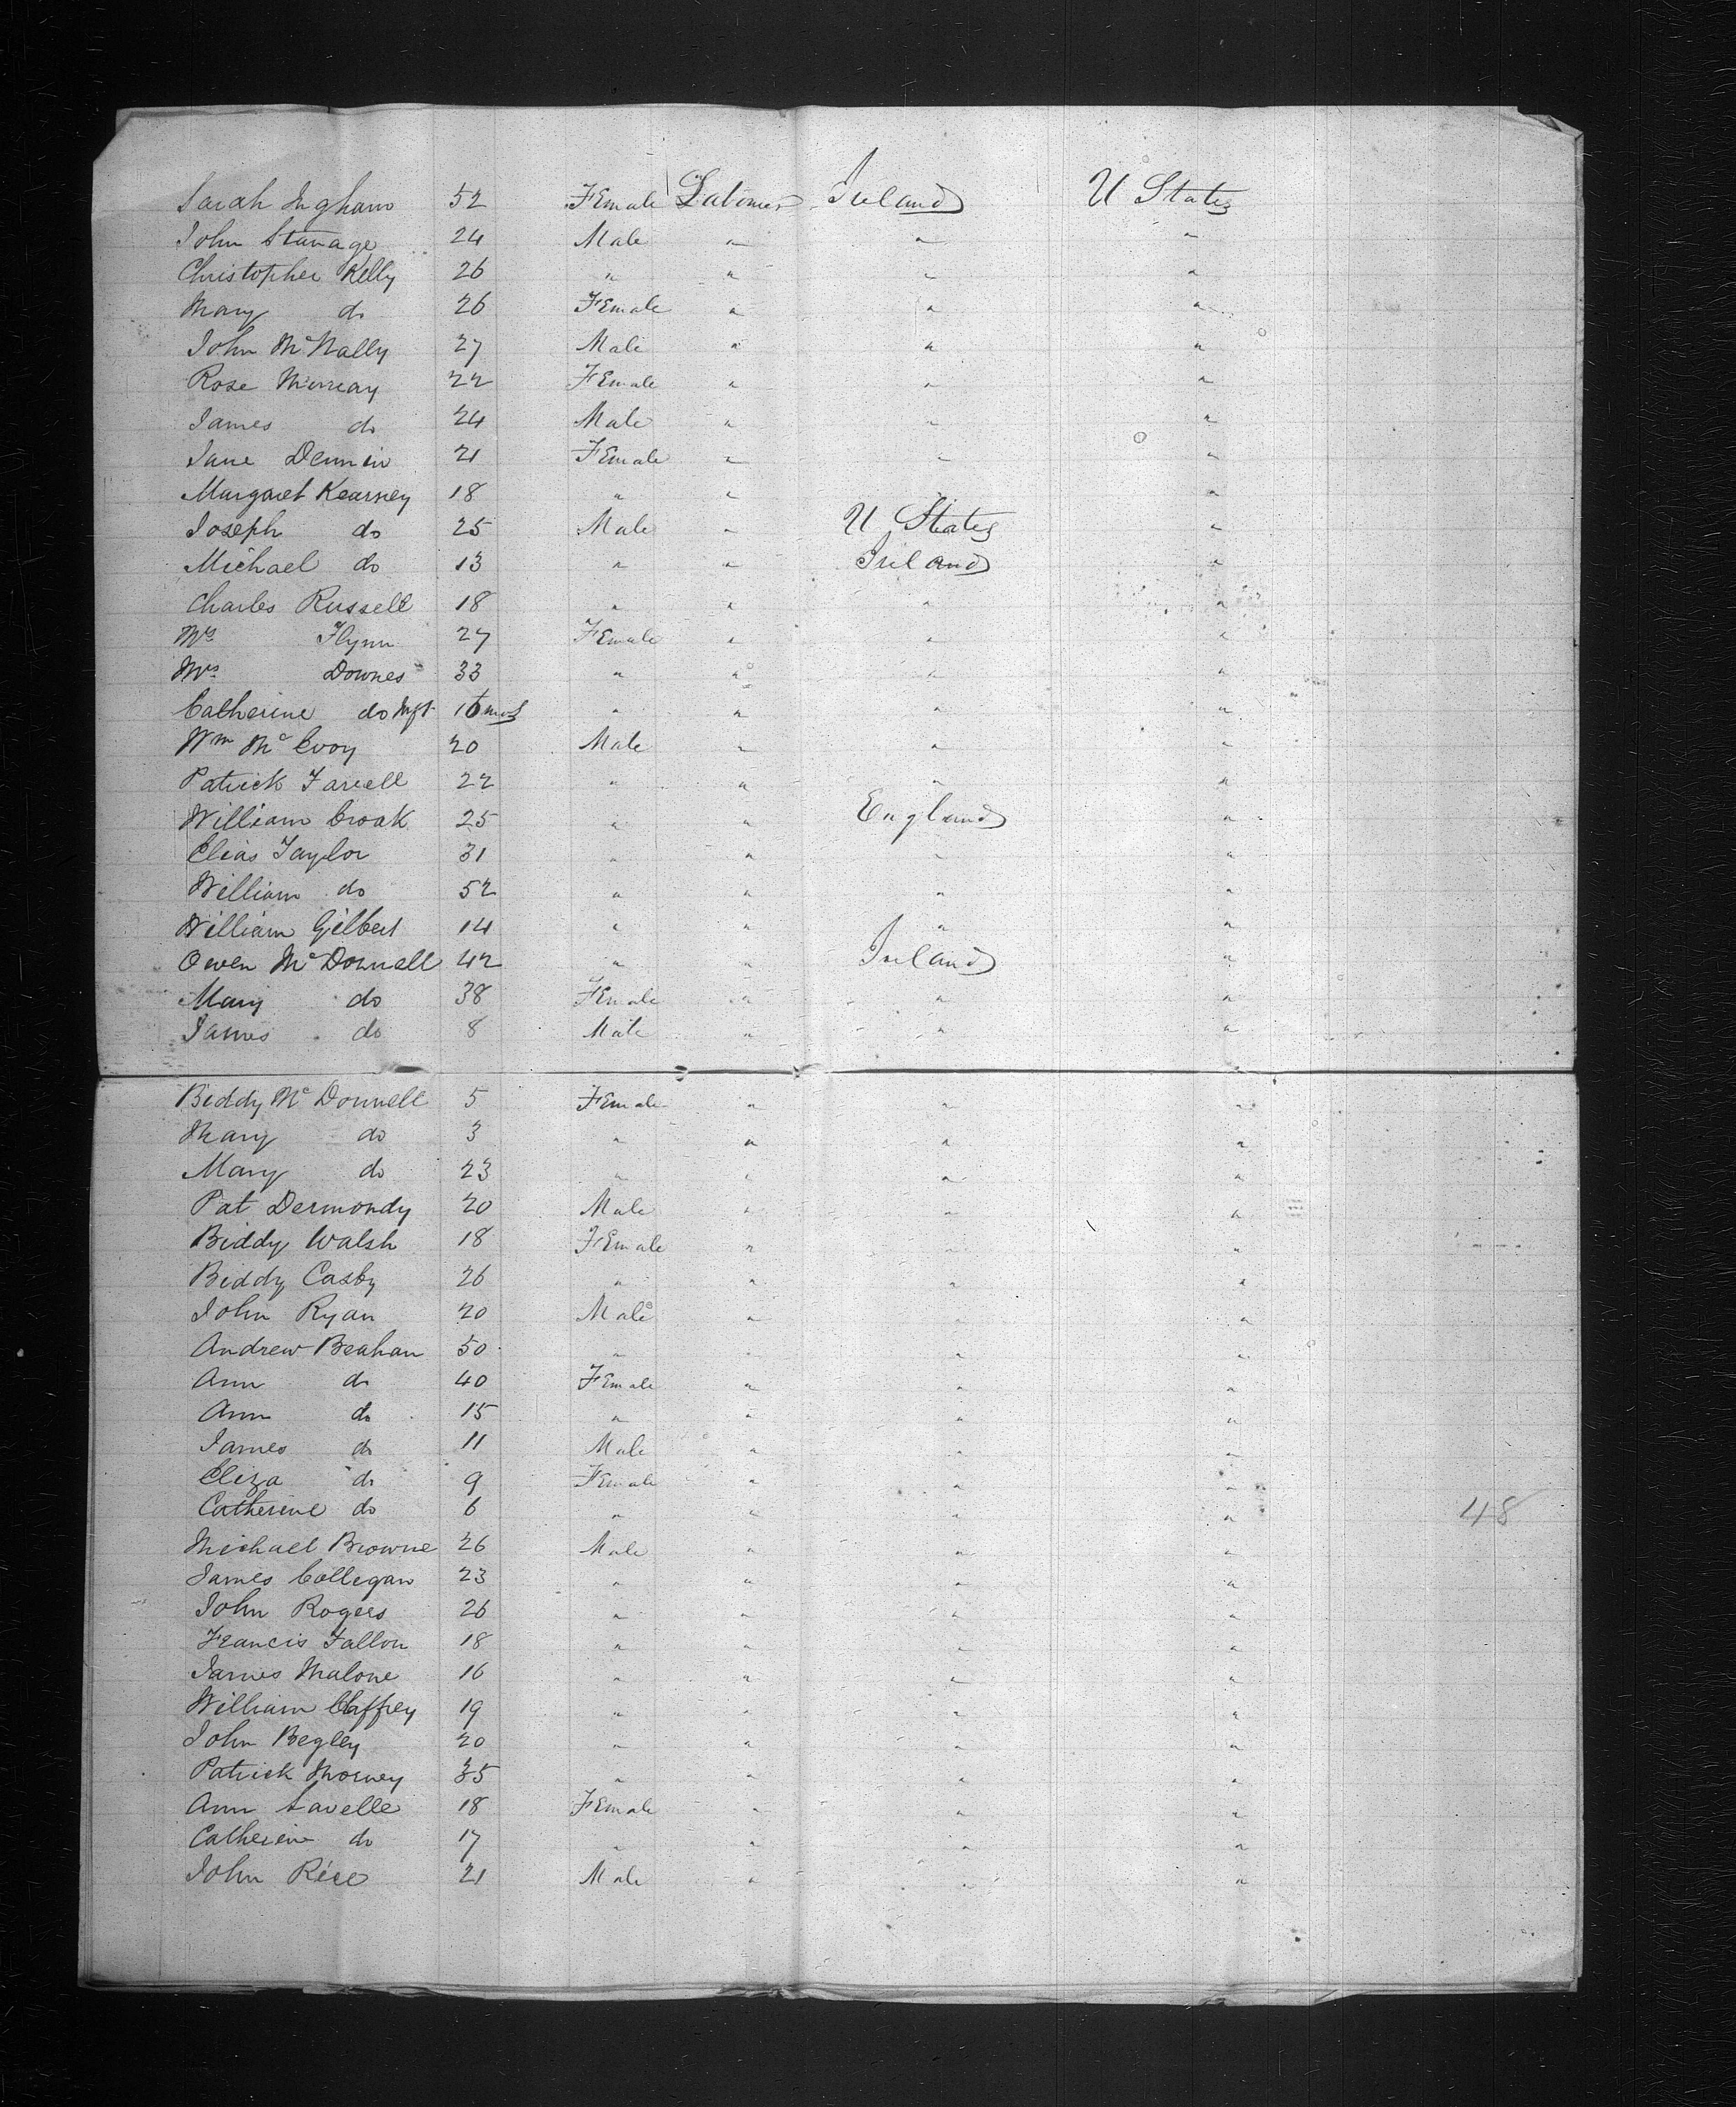 Sarah Ingham 52 Female Labourer Ireland U States
John Stanage 24 Male " " "
Christopher Kelly 26 " " " "
Mary do 26 Female " " "
John McNally 27 Male " " "
Rose Murray 22 Female " " "
James do 24 Male " " "
Jane Dennin 21 Female " " "
Margaret Kearney 18 " " " "
Joseph do 25 Male " U States "
Michael do 13 " " Ireland "
Charles Russell 18 " " " "
Mrs Flynn 27 Female " " "
Mrs Downes 33 " " " "
Catherine do Inft 10 mos " " " "
Wm McEvoy 20 Male " " "
Patrick Farrell 22 " " " "
William Croak 25 " " England "
Elias Taylor 31 " " " "
William do 52 " " " "
William Gilbert 14 " " " "
Owen McDonnell 42 " " Ireland "
Mary do 38 Female " " "
James do 8 Male " " "
Biddy McDonnell 5 Female " " "
Mary do 3 " " " "
Mary do 23 " " " "
Pat Dermondy 20 Male " " "
Biddy Walsh 18 Female " " "
Biddy Casby 26 " " " "
John Ryan 20 Male " " "
Andrew Beahan 50 " " " "
Ann do 40 Female " " "
Ann do 15 " " " "
James do 11 Male " " "
Eliza do 9 Female " " "
Catherine do 6 " " " " 48
Michael Browne 26 Male " " "
James Collegan 23 " " " "
John Rogers 26 " " " "
Francis Fallon 18 " " " "
James Malone 16 " " " "
William Claffey 19 " " " "
John Begley 20 " " " "
Patrick Morney 35 " " " "
Ann Lavelle 18 Female " " "
Catherine do 17 " " " "
John Rice 21 Male " " "